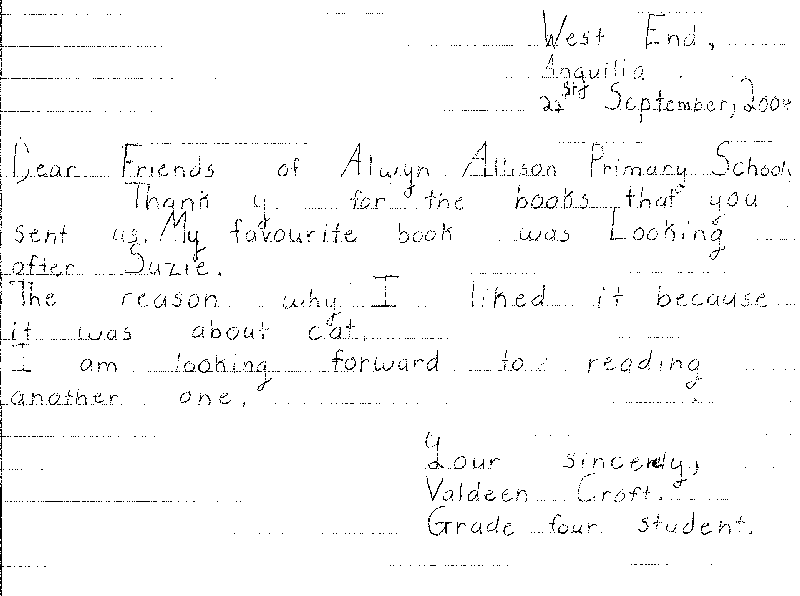 West End,
Anguilla
September, 2004
Dear Friends of Alwyn Allison Primary School
Thank y for the books that you
sent us. My favourite book was Looking
after Suzie.
The reason why I liked it because
it was about cat.
I am looking forward to reading
another one.
Your sincerely,
Valdeen Croft.
Grade four student.